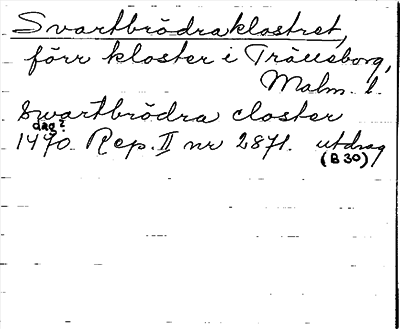 Svartbrödraklostret,
förr kloster i Trälleborg,
Malm. l.
Swartbrödra closter
dag?
1470. Rep. II nr 2871. utdrag
(B 30)